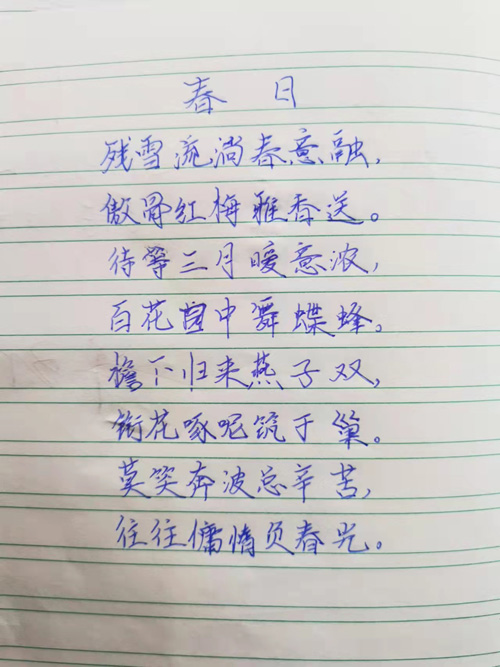 春 日
残雪流淌春意融,
傲骨红梅雅香送。
待等三月暖意浓,
百花园中舞蝶蜂。
檐下归来燕子双,
衔花啄呢筑于巢。
莫笑奔波总辛苦,
往往慵情负春光。